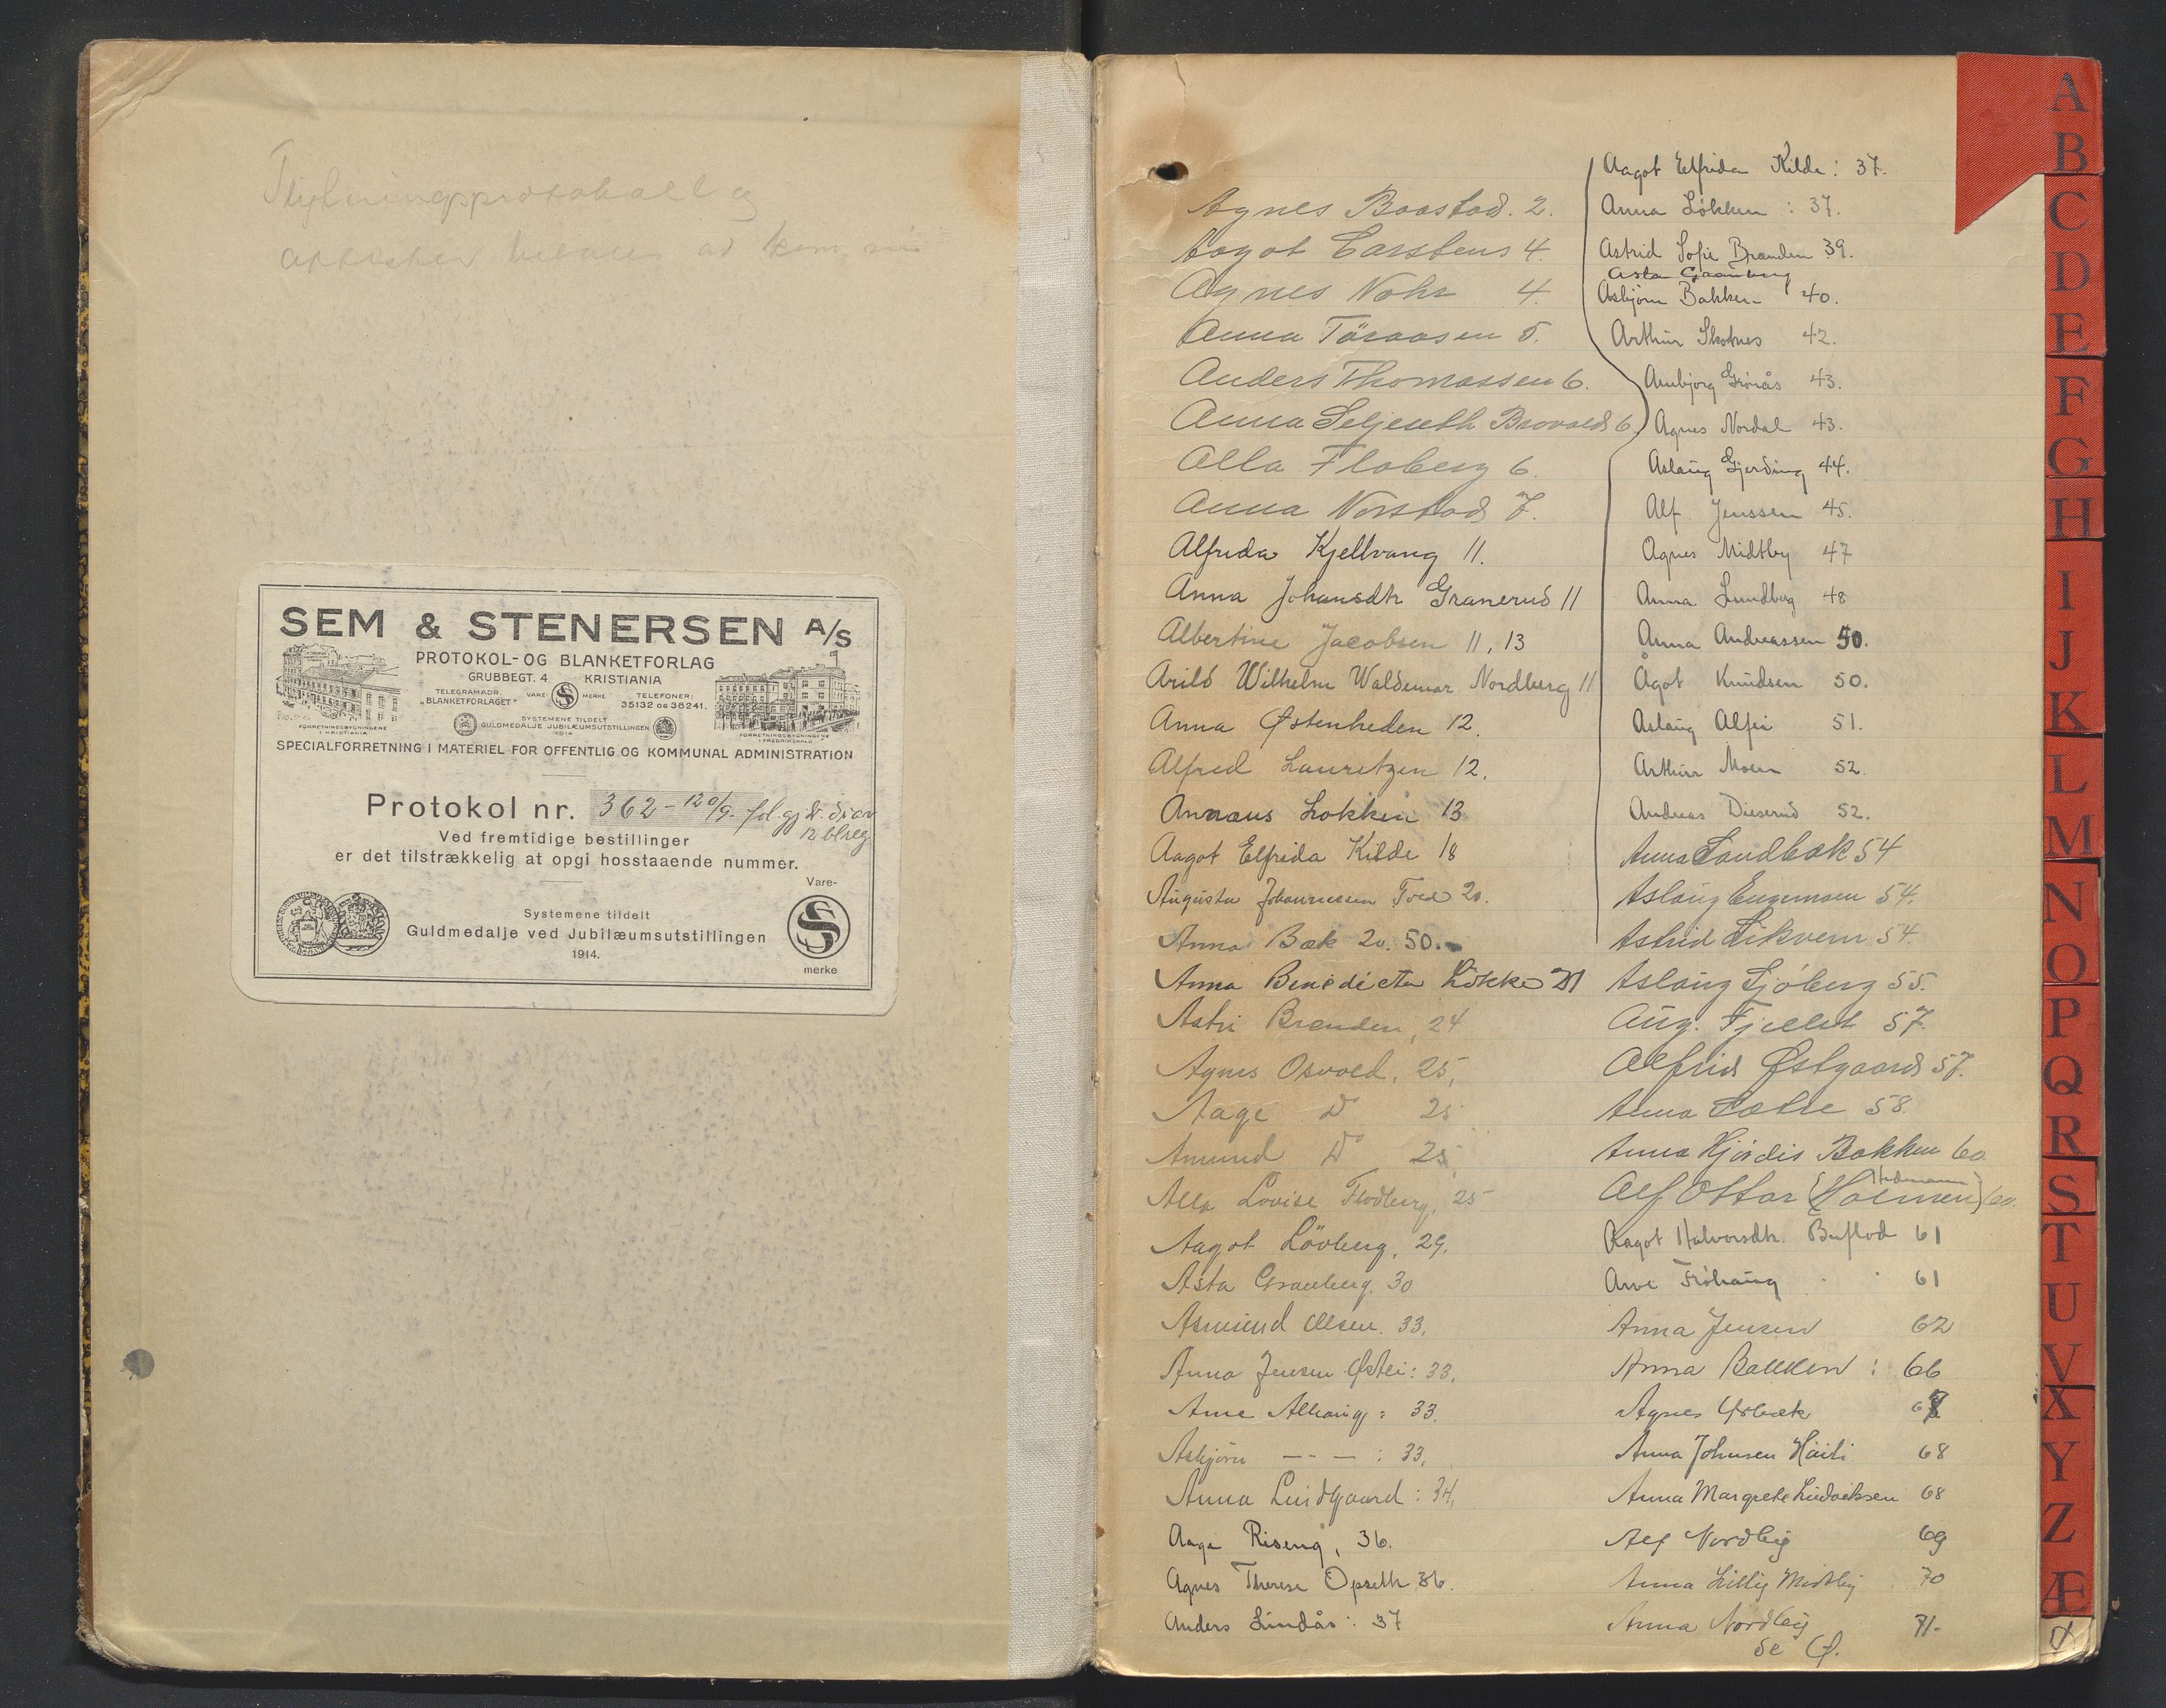 SEM & STENERSEN A/S
PROTOKOL- OG BLANKETFORLAG
GRUBBEGT. 4 KRISTIANIA
TELEGRAMADR. „BLANKETFORLAGET"
VARE MERKE
TELEFONER: 35132 OG 38241.
SYSTEMENE TILDELT
GULDMEDALJE JUBILÆUMSUTSTILLINGEN
1914
FORRETNINGSBYGNINGENE I KRISTIANIA
FORRETNINGSBYGNINGENE I FREDRIKSHALD
SPECIALFORRETNING I MATERIEL FOR OFFENTLIG OG KOMMUNAL ADMINISTRATION
Protokol nr. 362 - 120/9.
Ved fremtidige bestillinger
er det tilstrækkelig at opgi hosstaaende nummer.
Systemene tildelt
Guldmedalje ved Jubilæumsutstillingen
1914.
Vare-
merke
Agnes Baastad. 2.
Aagot Carstens 4.
Agnes Nohr 4.
Anna Töraasen 5.
Anders Thomassen 6.
Anna Seljeseth Brovold 6.
Alla Floberg 6.
Anna Norstad 7.
Alfrida Kjellvang 11.
Anna Johansdtr Granerud 11
Albertine Jacobsen 11, 13
Arild Wilhelm Waldemar Nordberg 11
Anna Østenheden 12.
Alfred Lauritzen 12.
Annæus Lokken 13
Aagot Elfrida Kilde 18
Augusta Johannessen 20.
Anna Bæk 20. 50.
Anna Benedicta Løkke 21
Astri Brenden, 24
Agnes Osvold. 25,
Aage Do 25
Amund Do 25,
Alla Lovise Flodberg, 25
Aagot Lövberg, 29.
Asta Granberg. 30
Asmund Olsen. 33.
Anna Jensen Østli: 33.
Arne Alhaug: 33.
Asbjörn — - — : 33.
Anna Lindgaard: 34.
Aage Riseng, 36.
Agnes Therese Opseth 36.
Anders Lindås: 37
Aagot Elfrida Kilde: 37.
Anna Løkken: 37.
Astrid Sofie Brænden 39.
Asta Granberg
Asbjørn Bakken 40.
Arthur Skotnes 42.
Ambjørg Grönås 43.
Agnes Nordal 43.
Aslaug Gjerding 44.
Alf Jenssen 45.
Agnes Midtby 47
Anna Lundberg 48
Anna Andreassen 50.
Ågot Knudsen 50.
Aslaug Alfei 51.
Arthur Moen 52.
Andreas Dieserud 52.
Anna Sandbæk 54
Aslaug Engemoen 54.
Astrid Likvern 54.
Aslaug Sjöberg 55.
Aug. Fjellet 57.
Alfrid Østgaard 57.
Anna Sætre 58.
Anna Hjördis Bakken 60
Hedemann
Alf Ottar (Holmen) 60.
Aagot Halvorsdtr. Buflod 61
Arve Fröhaug 61
Anna Jensen 62
Anna Bakken: 66
Agnes Ysbæk
Anna Johnsen 68
Anna Margrete Ludviksen 68
Alf Nordby 69
Anna Lilly Midtby 70
Anna Nordby 71.
se
A
B
C
D
E
F
G
H
I
J
K
L
M
N
O
P
Q
R
S
T
U
V
X
Y
Z
Æ
Ø